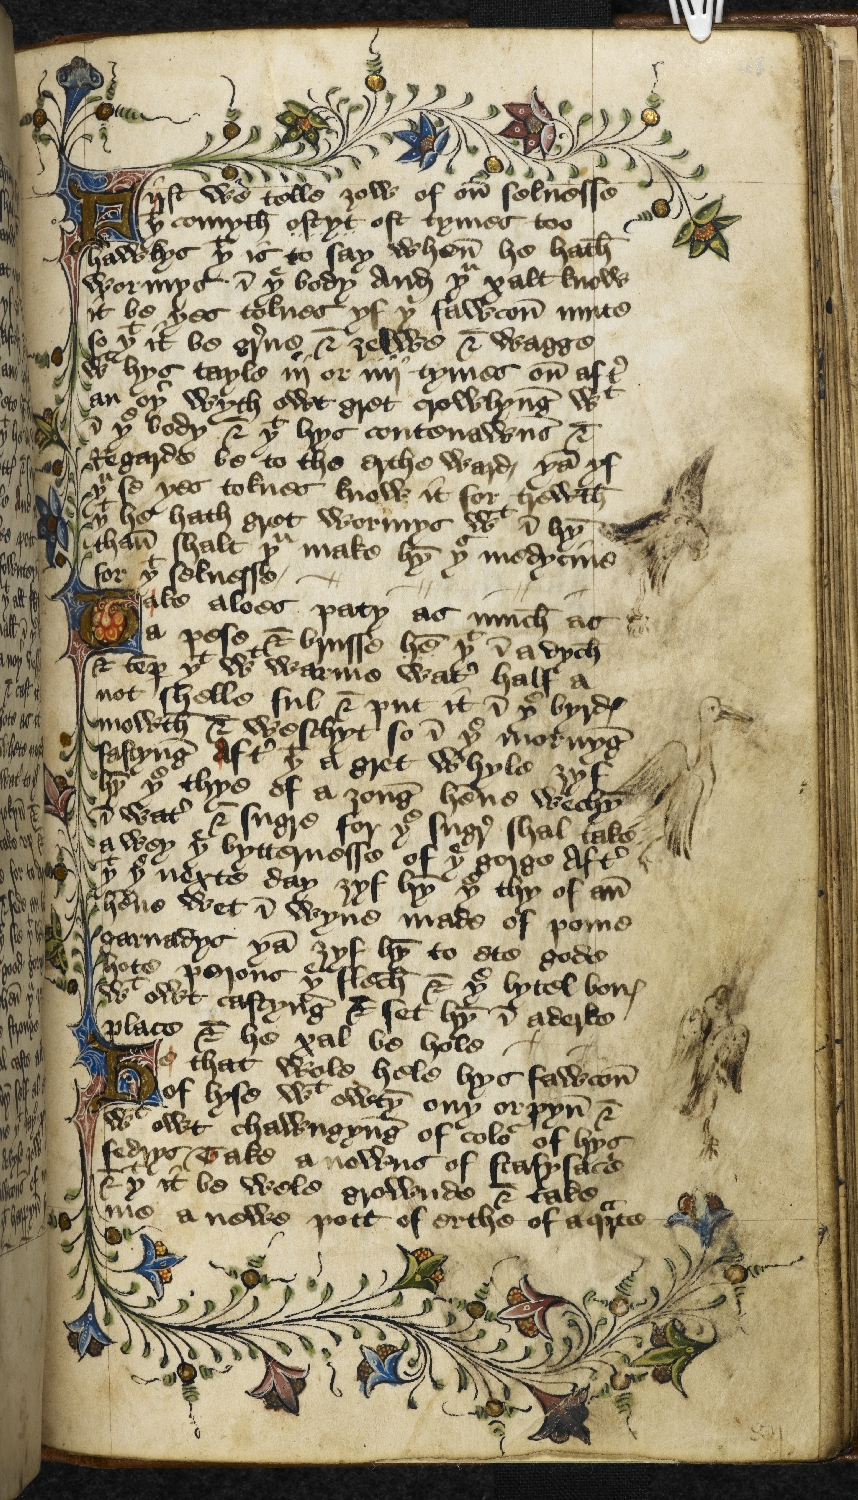 Fyrst we telle ȝow of on̄ seknesse
þᵗ comyth ofꞇyt ofꞇ tymes too
hawkys þᵗ is to say when̄ he hath
wormys ī þᵉ body And þᵘ xalt know
it be þes toknes yf þᵉ fawcon̄ mute
so þᵗ it be grene & ȝelwe & wagge
wᵗ hys tayle iij or iiij tymes on̄ aftʳ
an oþʳ wyth owt gret crowlyng wᵗ
ī þᵉ body & þᵗ hys contenawns &
Regarde be to the erthe ward, þā yf
þᵘ se þes toknes know it for trewth
þᵗ he hath gret wormys wᵗ ī hȳ
than̄ shalt þᵘ make hȳ þᵉ medycine
for þᵗ seknesse
Take aloes paty as much as
a pese & brusse hē þᵗ ī a dych
& tēp þᵗ wᵗ warme watʳ half a
not shelle ful & put it ī þᵉ byrdꝭ
mowth & weschyt so ī þᵉ mornyg
fastyng Aftʳ þᵗ a gret whyle ȝyf
hȳ þᵉ thye of a ȝong hene wechȳ
ī watʳ & sugre for þᵉ sugʳ shal take
awey þᵉ bytternesse of þᵉ gorge Aftʳ
þᵗ þᵉ nexte day ȝyf hȳ þᵉ thy of an̄
hene wet ī wyne made of pome
garnadys þā ȝyf hȳ to ete gode
hote peions þᵉ flech & þᵉ lytel bonꝭ
wᵗ owt castyng & set hȳ ī a derke
place & he xal be hole
He that wole hele hys fawcon̄
of lyse wᵗ owtȳ ony orpyn̄ &
wᵗ owt chawngyng of colo of hys
fedrys Take a nowns of stafysacre
& þᵗ it be wele grownde & take
me a newe pott of erthe of a qᵃrte